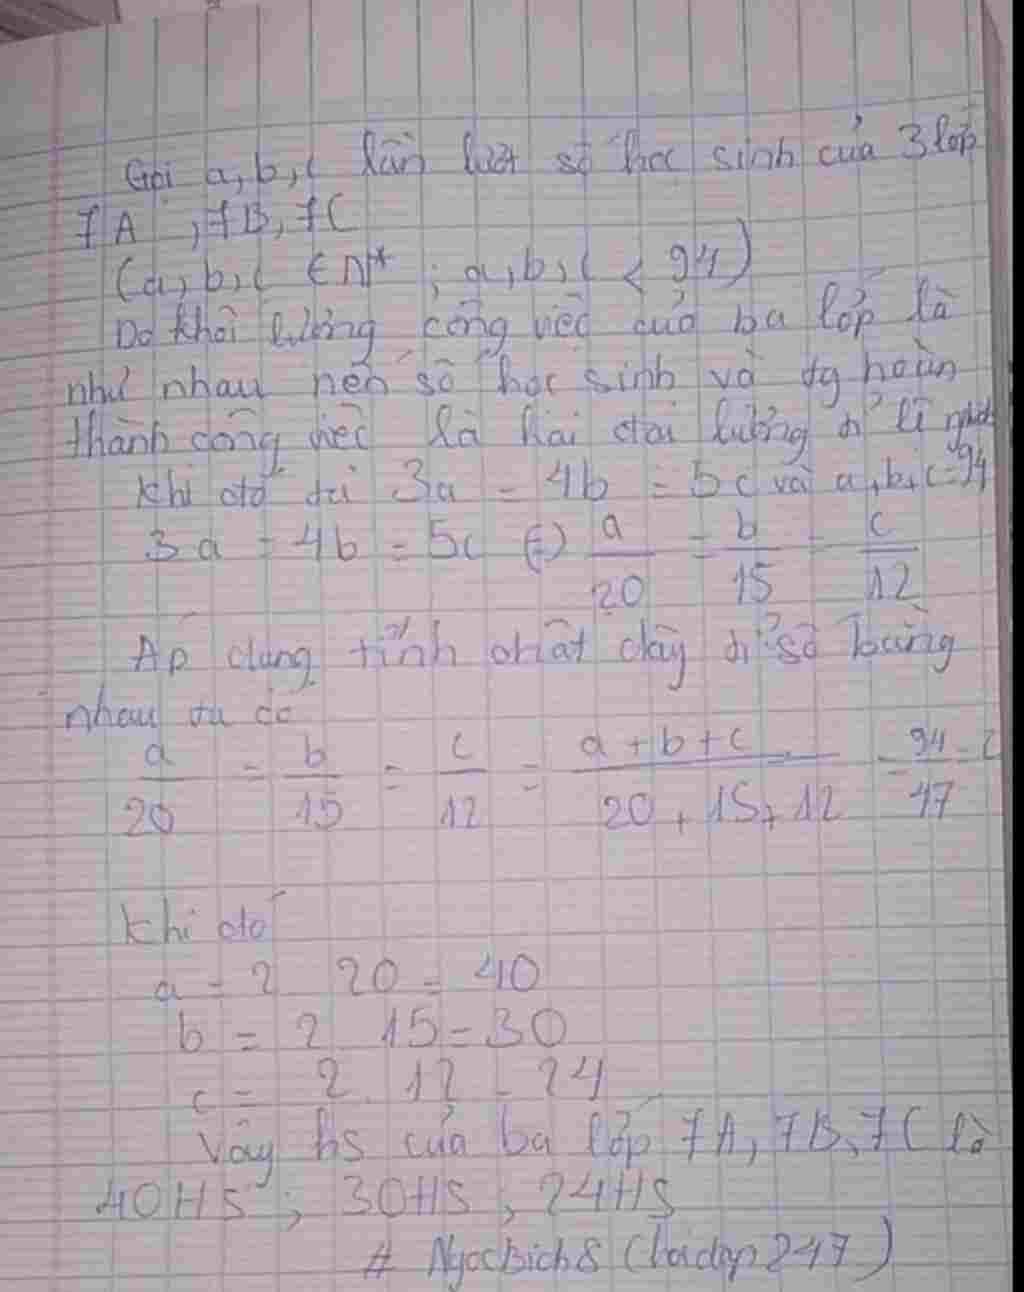 Gọi a, b, c lần lượt số học sinh của 3 lớp
7A, 7B, 7C
(a, b, c ∈ N* ; a, b, c < 94)
Do khối lượng công việc của ba lớp là
như nhau nên số học sinh và tg hoàn
thành công việc là hai đại lượng tỉ lệ nghịch
Khi đó ta 3a = 4b = 5c và a+b+c=94
3a = 4b = 5c (=) a/20 = b/15 = c/12
Áp dụng tính chất dãy tỉ số bằng
nhau ta có
a/20 = b/15 = c/12 = a+b+c/20+15+12 = 94/47 = 2
Khi đó
a = 2 20 = 40
b = 2 15 = 30
c = 2. 12 = 24
Vậy hs của ba lớp 7A, 7B, 7C là
40HS ; 30HS ; 24HS
# NgocBich8 (hoidap247)